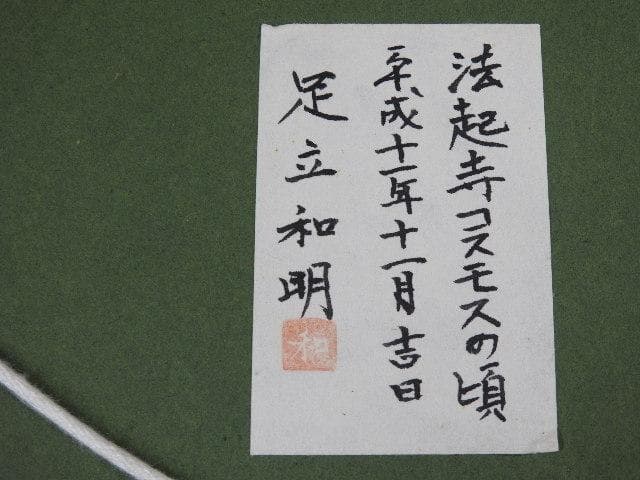 法起寺コスモスの頃
平成十一年十一月吉日
足立和明
和